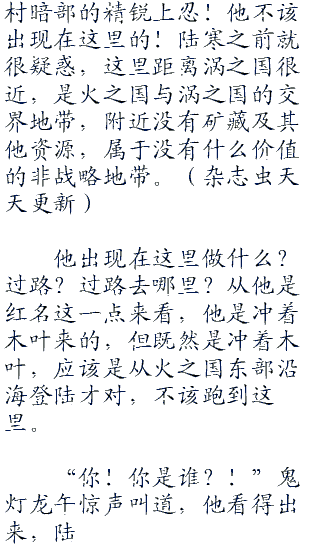 村暗部的精锐上忍！他不该
出现在这里的！陆寒之前就
很疑惑，这里距离涡之国很
近，是火之国与涡之国的交
界地带，附近没有矿藏及其
他资源，属于没有什么价值
的非战略地带。（杂志虫天
天更新）
他出现在这里做什么？
过路？过路去哪里？从他是
红名这一点来看，他是冲着
木叶来的，但既然是冲着木
叶，应该是从火之国东部沿
海登陆才对，不该跑到这
里。
“你！你是谁？！”鬼
灯龙午惊声叫道，他看得出
来，陆